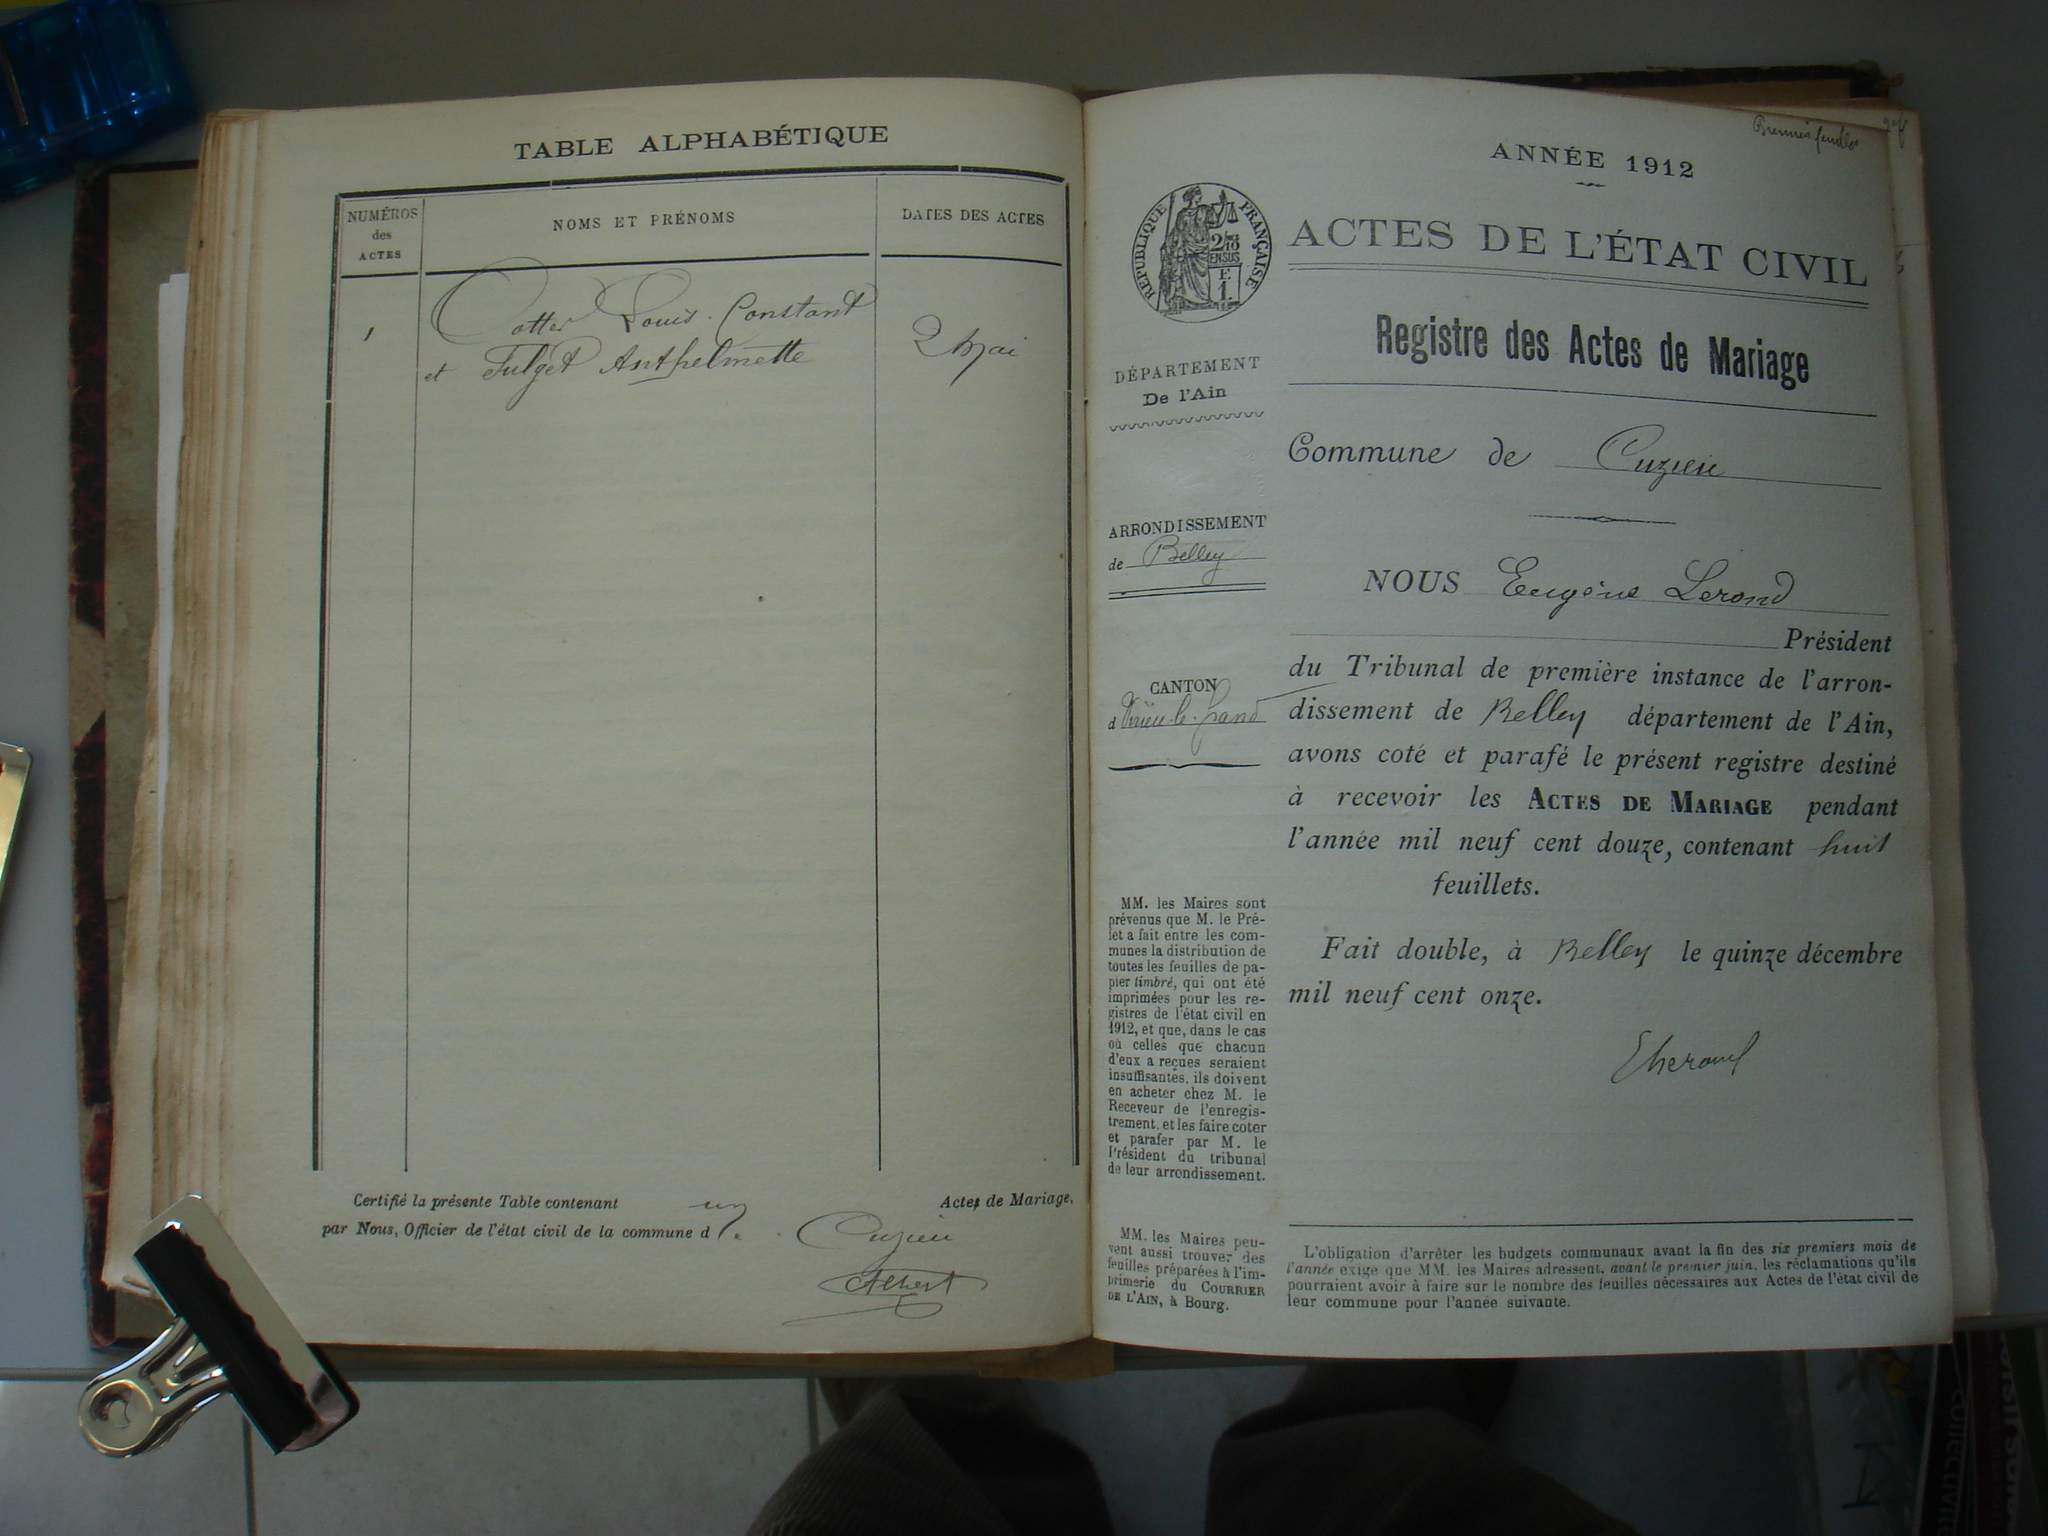 TABLE ALPHABÉTIQUE
NUMÉROS
des
ACTES
NOMS ET PRÉNOMS
DATES DES ACTES
1
Cotter Louis Constant
et Fulget Anthelmette
2 Mai
Certifié la présente Table contenant un Actes de Mariage,
par Nous, Officier de l'état civil de la commune de Cuzieu
Premier feuillet
ANNÉE 1912
RÉPUBLIQUE FRANÇAISE
ACTES DE L'ÉTAT CIVIL
Registre des Actes de Mariage
DÉPARTEMENT
De l'Ain
Commune de Cuzieu
ARRONDISSEMENT
de Belley
CANTON
d Virieu-le-Grand
MM. les Maires sont
prévenus que M. le Pré-
fet a fait entre les com-
munes la distribution de
toutes les feuilles de pa-
pier timbré, qui ont été
imprimées pour les re-
gistres de l'état civil en
1912, et que, dans le cas
où celles que chacun
d'eux a reçues seraient
insuffisantes, ils doivent
en acheter chez M. le
Receveur de l'enregis-
trement, et les faire coter
et parafer par M. le
Président du tribunal
de leur arrondissement.
MM. les Maires peu-
vent aussi trouver des
feuilles préparées à l'im-
primerie du COURRIER
DE L'AIN, à Bourg.
NOUS Eugène Lerond
Président
du Tribunal de première instance de l'arron-
dissement de Belley département de l'Ain,
avons coté et parafé le présent registre destiné
à recevoir les ACTES DE MARIAGE pendant
l'année mil neuf cent douze, contenant huit
feuillets.
Fait double, à Belley le quinze décembre
mil neuf cent onze.
L'obligation d'arrêter les budgets communaux avant la fin des six premiers mois de
l'année exige que MM. les Maires adressent, avant le premier juin, les réclamations qu'ils
pourraient avoir à faire sur le nombre des feuilles nécessaires aux Actes de l'état civil de
leur commune pour l'année suivante.